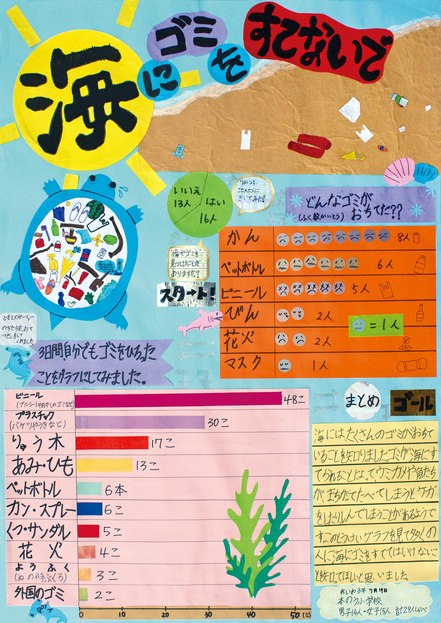 海にゴミをすてないで
いいえ
13人
はい
16人
どんなゴミが
(ふく数かいとう)
おちてた??
かん 8人
ペットボトル 6人
ビニール 5人
びん 2人
花火 2人
マスク 1人
=1人
スタート!
3日間自分でもゴミをひろった
ことをグラフにしてみました。
ビニール
48こ
プラスチック
30こ
りゅう木 17こ
あみ・ひも 13こ
ペットボトル 6本
カン・スプレー 6こ
くつ・サンダル 5こ
花火 4こ
ようふく 3こ
外国のゴミ 2こ
0 10 20 30 40 50 (こ)
まとめ
ゴール
海にはたくさんのゴミがおちて
いることを知りましたゴミが海にす
てられることは、ウミガメや魚たち
がまちがってたべてしまうとケガ
をしたりしんでしまうことがあるようで
すこのぼうグラフを見て多くの
人に海にゴミをすててはいけないこ
とを知ってほしいと思いました。
れいわ3年7月19日
小学校
男子14人・女子15人 合計29人